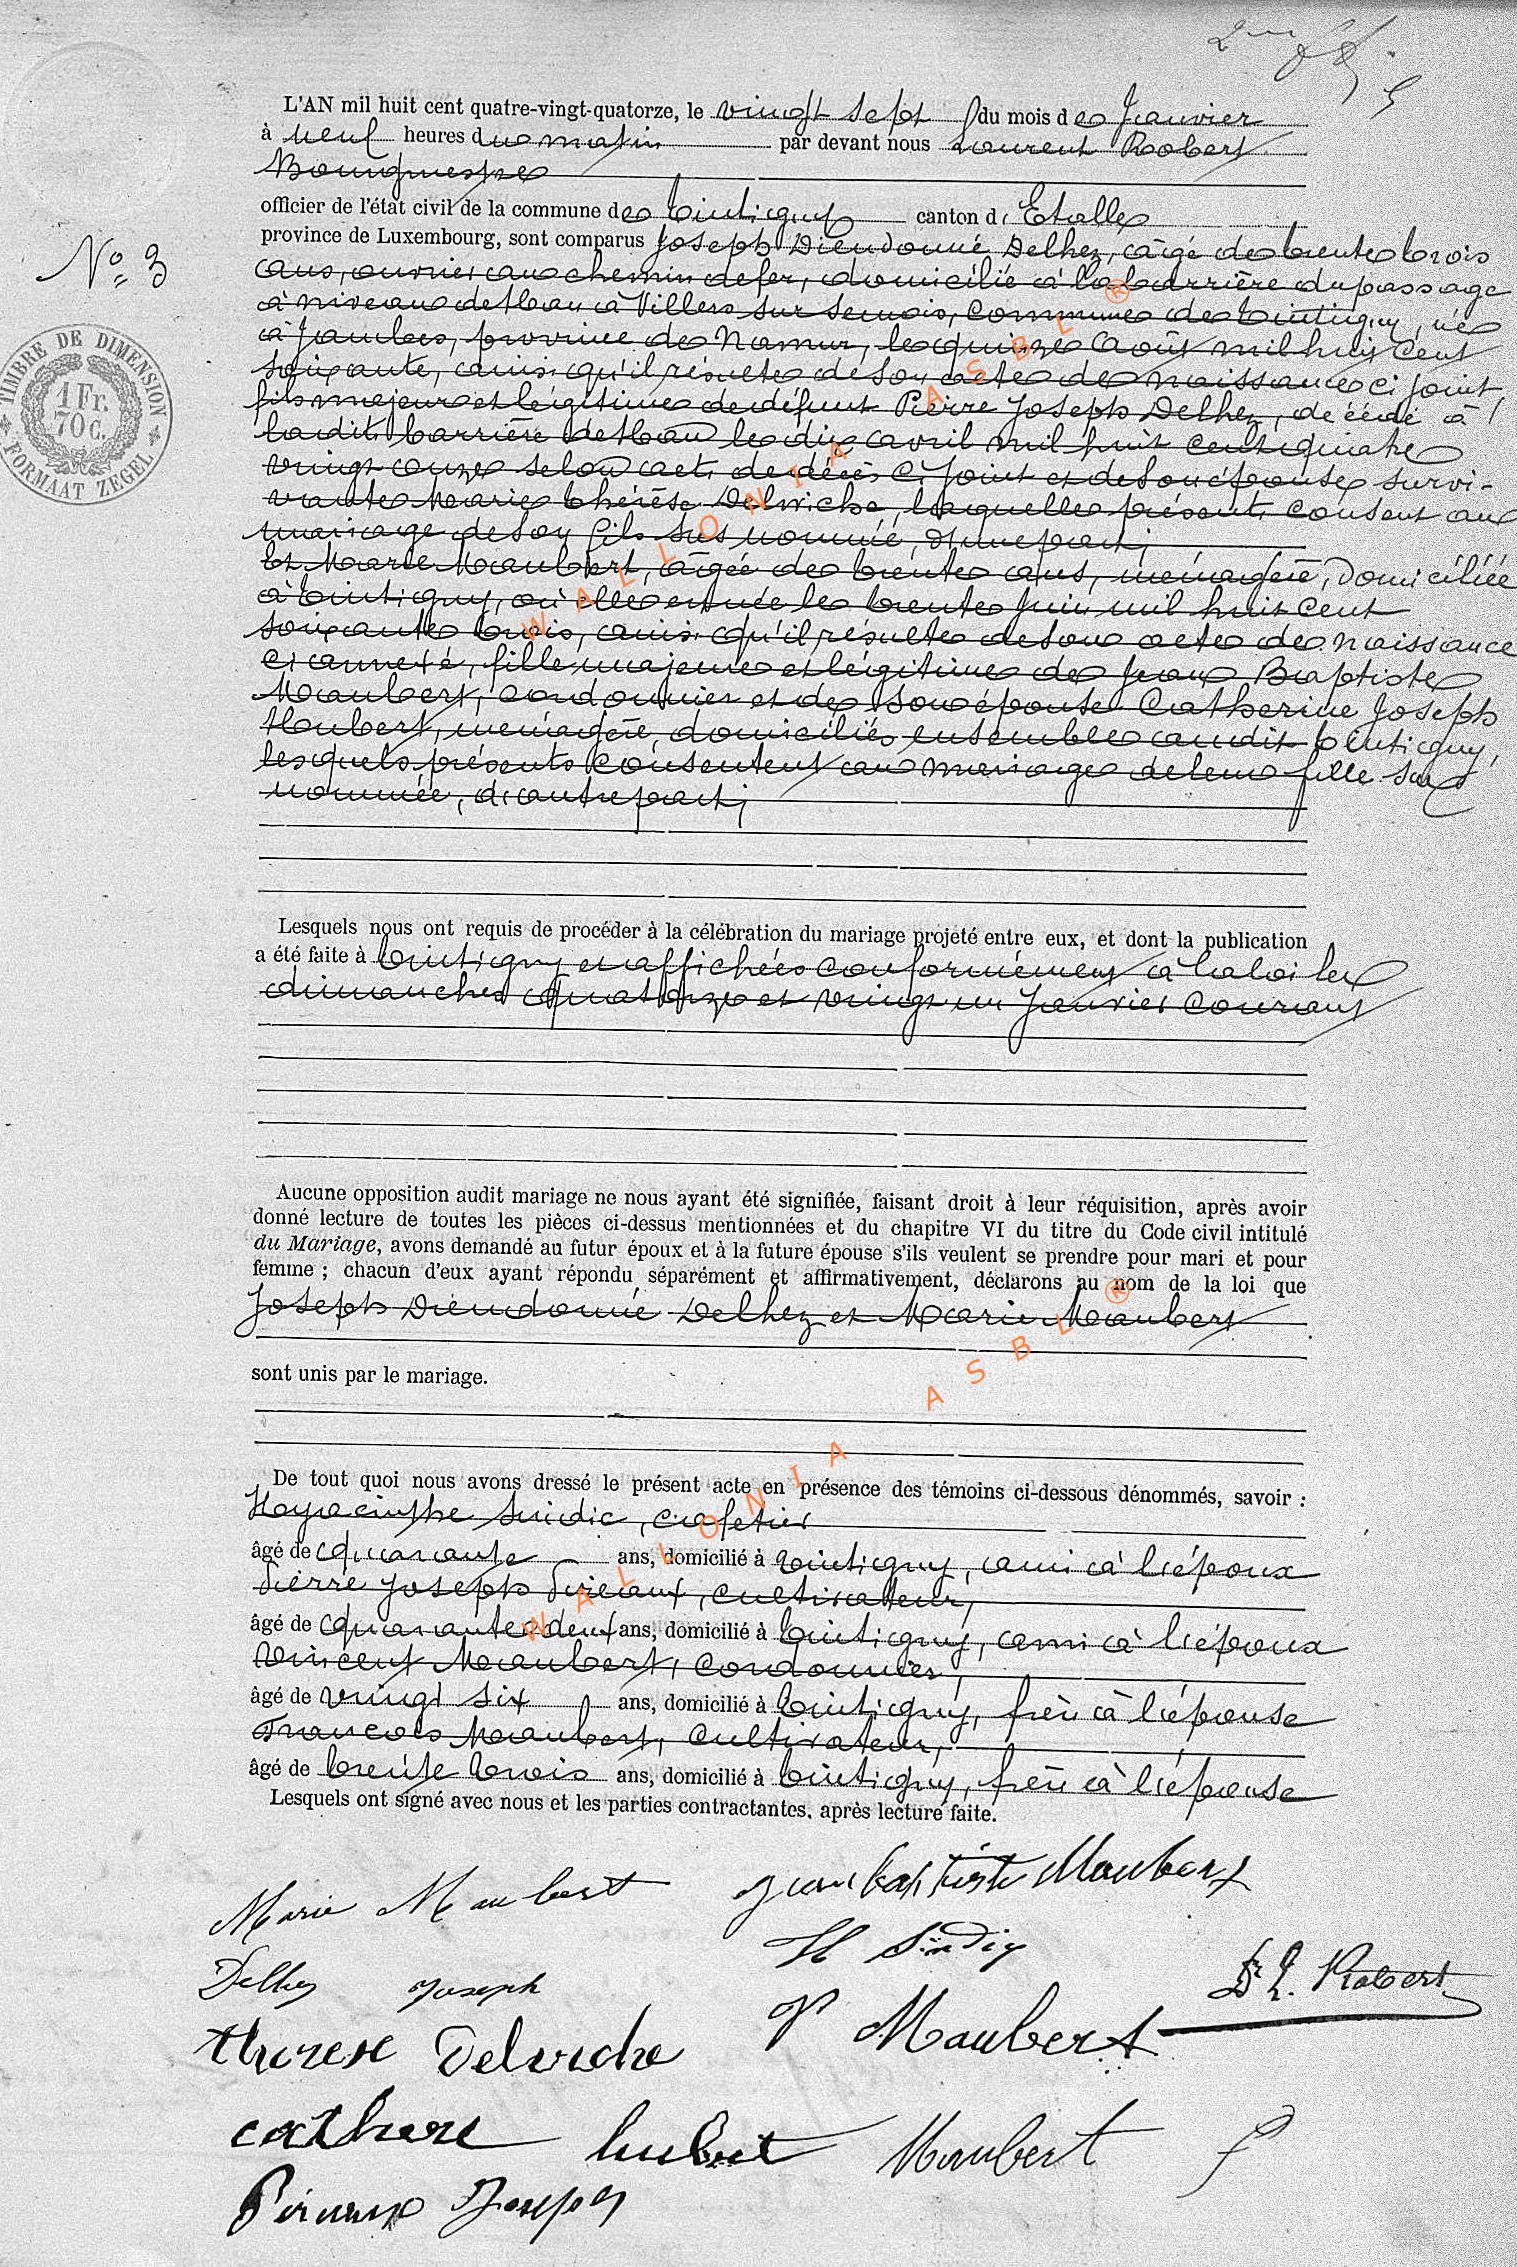 L'AN mil huit cent quatre-vingt-quatorze, le vingt sept du mois de Janvier
à neuf heures du matin par devant nous Laurent Robert
Bourgmestre
officier de l'état civil de la commune de Tintigny canton d'Etalle
province de Luxembourg, sont comparus Joseph Dieudonné Delhez, âgé de trente trois
N° 3
ans, ouvrier au chemin de fer, domicilié à la barrière du passage
à niveau de Han à Villers sur Semois, commune de Tintigny, né
à Jambes, province de Namur, le quinze Août mil huit cent
soixante, ainsi qu'il résulte de son acte de naissance ci joint,
fils majeur et légitime de défunt Pierre Joseph Delhez, décédé à
TIMBRE DE DIMENSION
1 Fr.
70 C.
FORMAAT ZEGEL
ladite barrière de Han le dix avril mil huit cent quatre
vingt onze selon acte de décès ci joint et de son épouse survi-
vante Marie Thérèse Delwiche, laquelle présente consent au
mariage de son fils sus nommé, d'une part;
Et Marie Maubert, âgée de trente ans, ménagère, domiciliée
à Tintigny, où elle est née le trente Juin mil huit cent
soixante trois, ainsi qu'il résulte de son acte de naissance
ci annexé, fille majeure et légitime de Jean Baptiste
Maubert, cordonnier et de son épouse Catherine Joseph
Hubert, ménagère, domiciliés ensemble audit Tintigny,
lesquels présents consentent au mariage de leur fille sus
nommée, d'autre part;
Lesquels nous ont requis de procéder à la célébration du mariage projeté entre eux, et dont la publication
a été faite à Tintigny et affichées conformément à la loi les
dimanches quatorze et vingt un Janvier courant
Aucune opposition audit mariage ne nous ayant été signifiée, faisant droit à leur réquisition, après avoir
donné lecture de toutes les pièces ci-dessus mentionnées et du chapitre VI du titre du Code civil intitulé
du Mariage, avons demandé au futur époux et à la future épouse s'ils veulent se prendre pour mari et pour
femme ; chacun d'eux ayant répondu séparément et affirmativement, déclarons au nom de la loi que
Joseph Dieudonné Delhez et Marie Maubert
sont unis par le mariage.
De tout quoi nous avons dressé le présent acte en présence des témoins ci-dessous dénommés, savoir :
Hyacinthe Sindic, cafetier
âgé de quarante ans, domicilié à Tintigny, ami à l'époux
Pierre Joseph Pirieaux, cultivateur,
âgé de quarante deux ans, domicilié à Tintigny, ami à l'époux
Vincent Maubert, cordonnier,
âgé de vingt six ans, domicilié à Tintigny, frère à l'épouse
François Maubert, cultivateur,
âgé de trente trois ans, domicilié à Tintigny, frère à l'épouse
Lesquels ont signé avec nous et les parties contractantes, après lecture faite.
Marie Maubert Jean baptiste Maubert
H Sindic
Delhez Joseph Dr L. Robert
V Maubert
therese Delviche
catherine hubert Maubert F
Pirieaux Joseph
WALLONIA ASBL ®
WALLONIA ASBL ®